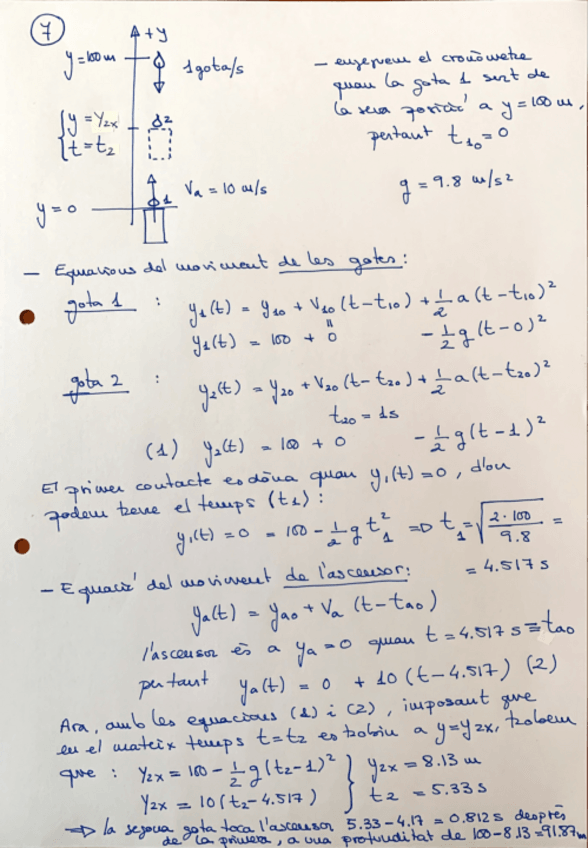 7
+y
y=100m
1 gota/s
{ y = Y2x
t = t2
2
y=0
1
Va = 10 m/s
– engeguem el cronòmetre
quan la gota 1 surt de
la seva posició a y=100 m,
pertant t10=0
g = 9.8 m/s2
– Equacions del moviment de les gotes:
gota 1 : y1(t) = y10 + V10 (t-t10) + 1/2 a (t-t10)^2
y1(t) = 100 + 0 - 1/2 g (t-0)^2
gota 2 : y2(t) = y20 + V20 (t-t20) + 1/2 a (t-t20)^2
t20 = 1s
(1) y2(t) = 100 + 0 - 1/2 g (t-1)^2
El primer contacte es dóna quan y1(t)=0, d'on
podem treure el temps (t1):
y1(t) = 0 = 100 - 1/2 g t1^2 => t1 = √(2·100/9.8) =
= 4.517 s
– Equació del moviment de l'ascensor:
ya(t) = ya0 + Va (t-ta0)
l'ascensor és a ya=0 quan t=4.517 s ≡ ta0
pertant ya(t) = 0 + 10 (t-4.517) (2)
Ara, amb les equacions (1) i (2), imposant que
en el mateix temps t=t2 es trobin a y=y2x, trobem
que : Y2x = 100 - 1/2 g (t2-1)^2 } y2x = 8.13 m
Y2x = 10 (t2-4.517) } t2 = 5.33 s
=> la segona gota toca l'ascensor 5.33-4.17=0.812 s després
de la primera, a una profunditat de 100-8.13=91.87m